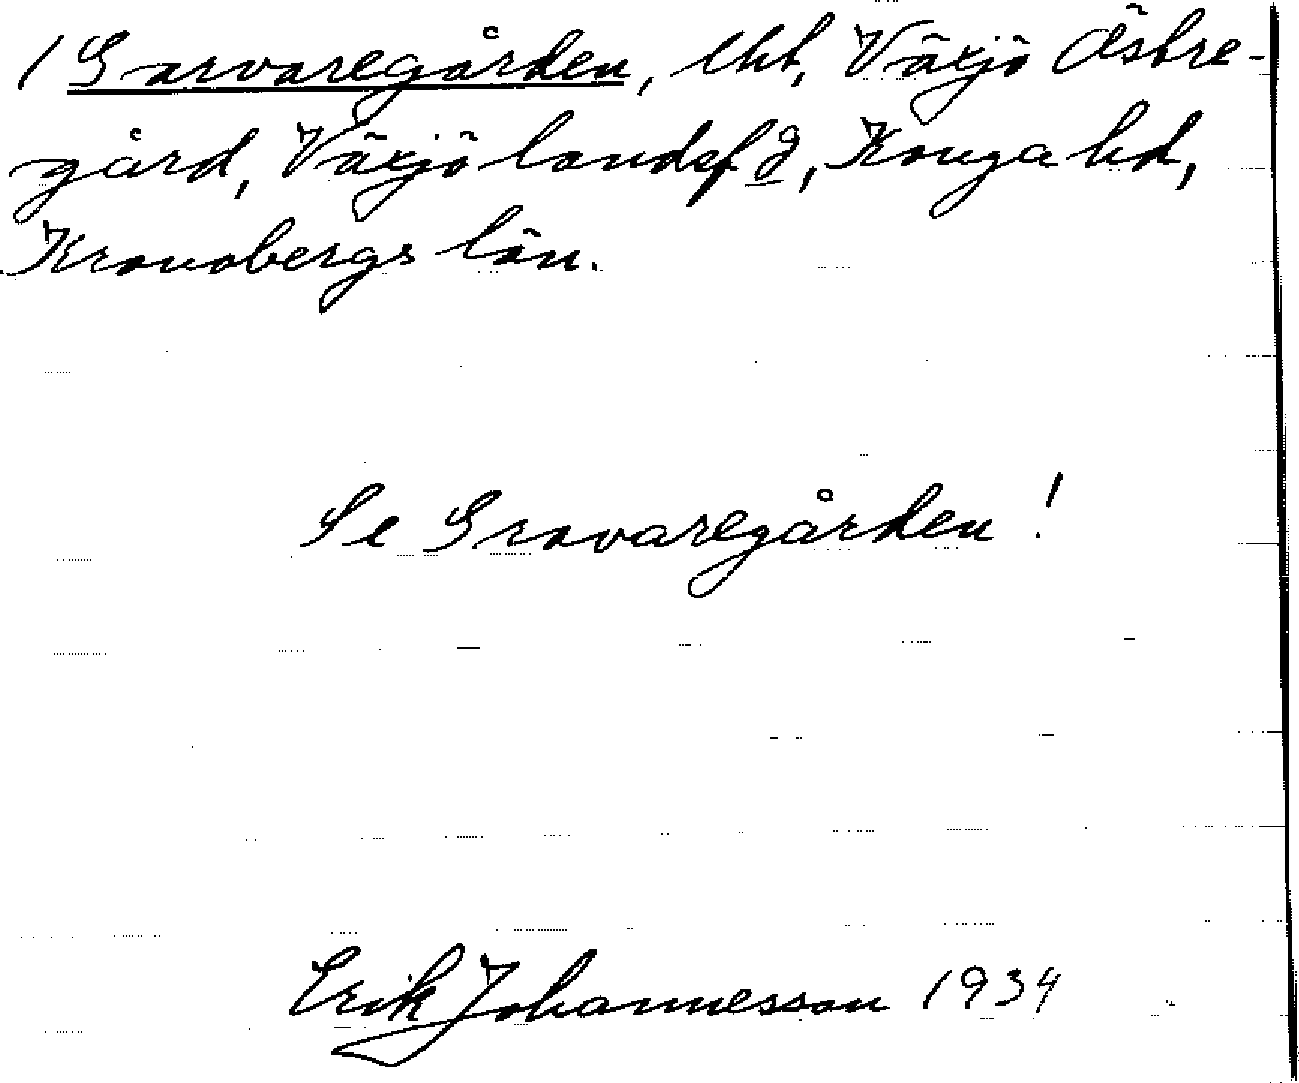 / Garvaregården, lht, Växjö Östre-
gård, Växjö landsf d, Konga hd,
Kronobergs län.
Se Gravaregården!
Erik Johannesson 1934